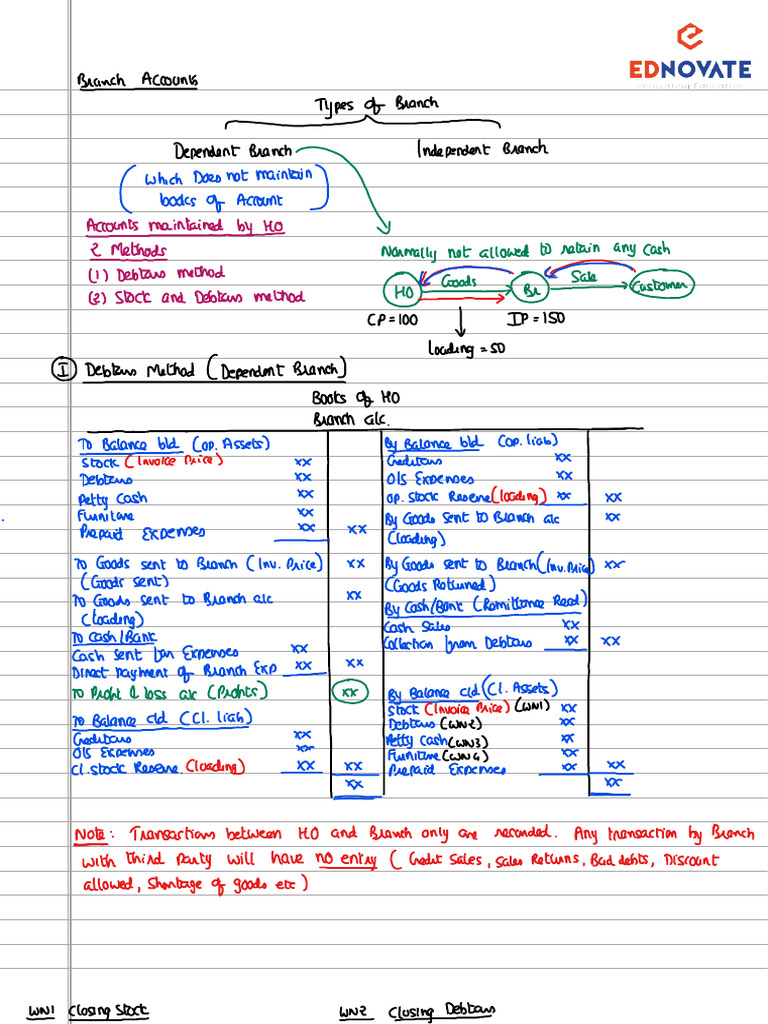 EDNOVATE
Branch Accounts
Types of Branch
Dependent Branch
Independent Branch
(Which Does not maintain
books of Account)
Accounts maintained by HO
2 Methods
(1) Debtors method
(2) Stock and Debtors method
Normally not allowed to retain any cash
HO Goods Br Sale Customer
CP=100 IP=150
loading = 50
(I) Debtors Method (Dependent Branch)
Books of HO
Branch a/c.
To Balance b/d (op. Assets)
Stock (Invoice Price) xx
Debtors xx
Petty Cash xx
Furniture xx
Prepaid Expenses xx xx
To Goods sent to Branch (Inv. Price) xx
(Goods sent)
To Goods sent to Branch a/c xx
(loading)
To Cash/Bank
Cash sent for Expenses xx
Direct Payment of Branch Exp xx xx
To Profit & loss a/c (Profits) xx
To Balance c/d (Cl. liab)
Creditors xx
O/s Expenses xx
Cl. stock Reserve (loading) xx xx
xx
By Balance b/d (op. liab)
Creditors xx
O/s Expenses xx
op. Stock Reserve (loading) xx xx
By Goods sent to Branch a/c xx
(loading)
By Goods sent to Branch (Inv. Price) xx
(Goods Returned)
By Cash/Bank (Remittance Recd)
Cash Sales xx
Collection from Debtors xx xx
By Balance c/d (Cl. Assets)
Stock (Invoice Price) (WN1) xx
Debtors (WN2) xx
Petty Cash (WN3) xx
Furniture (WN4) xx
Prepaid Expenses xx xx
xx
Note: Transactions between HO and Branch only are recorded. Any transaction by Branch
with third Party will have no entry (Credit Sales, Sales Returns, Bad debts, Discount
allowed, Shortage of goods etc)
WN1 Closing Stock
WN2 Closing Debtors